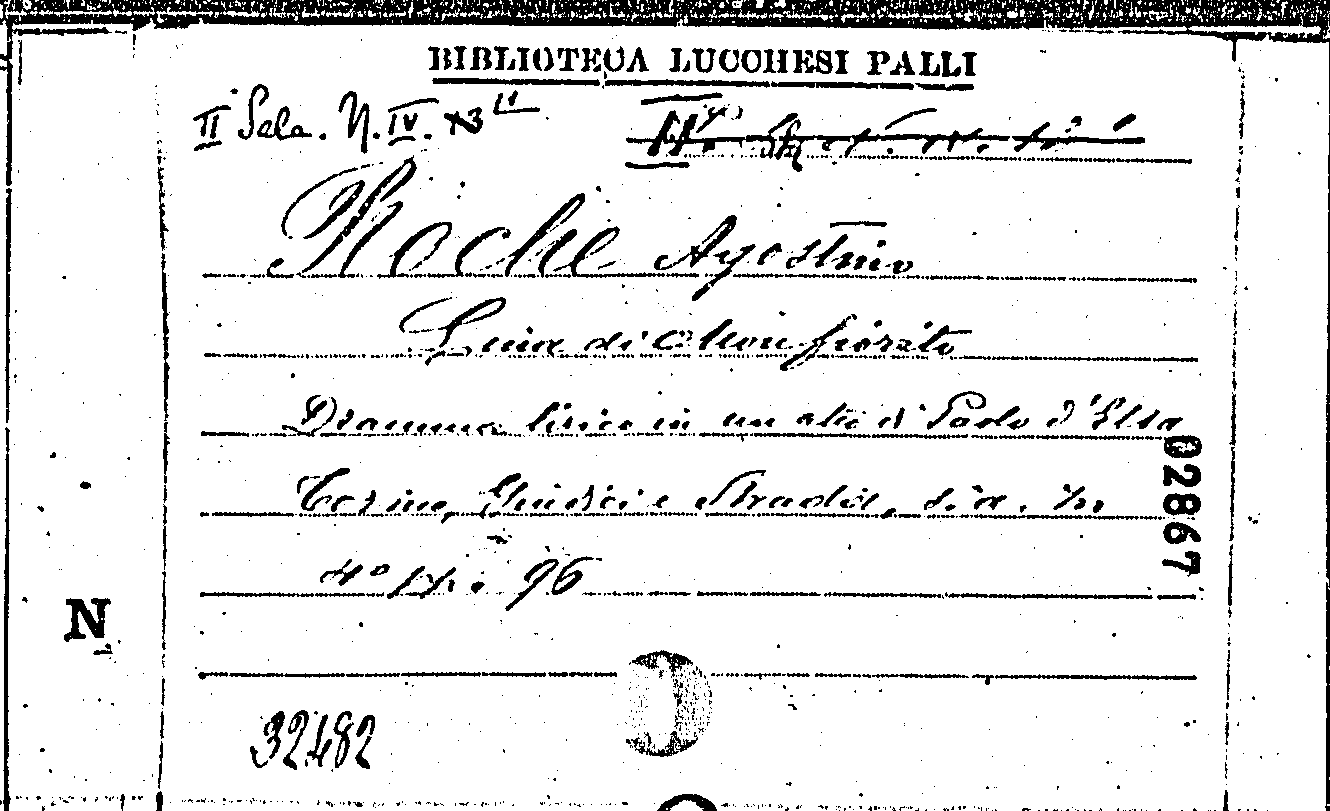 BIBLIOTECA LUCCHESI PALLI
II Sala. N. IV. 13
Roche Agostino
Luisa di Monfiorito
Dramma lirico in un atto di Paolo d'Elsa
Torino, Giudici e Strada, s. a. in
4° pp. 96
02867
N
32482